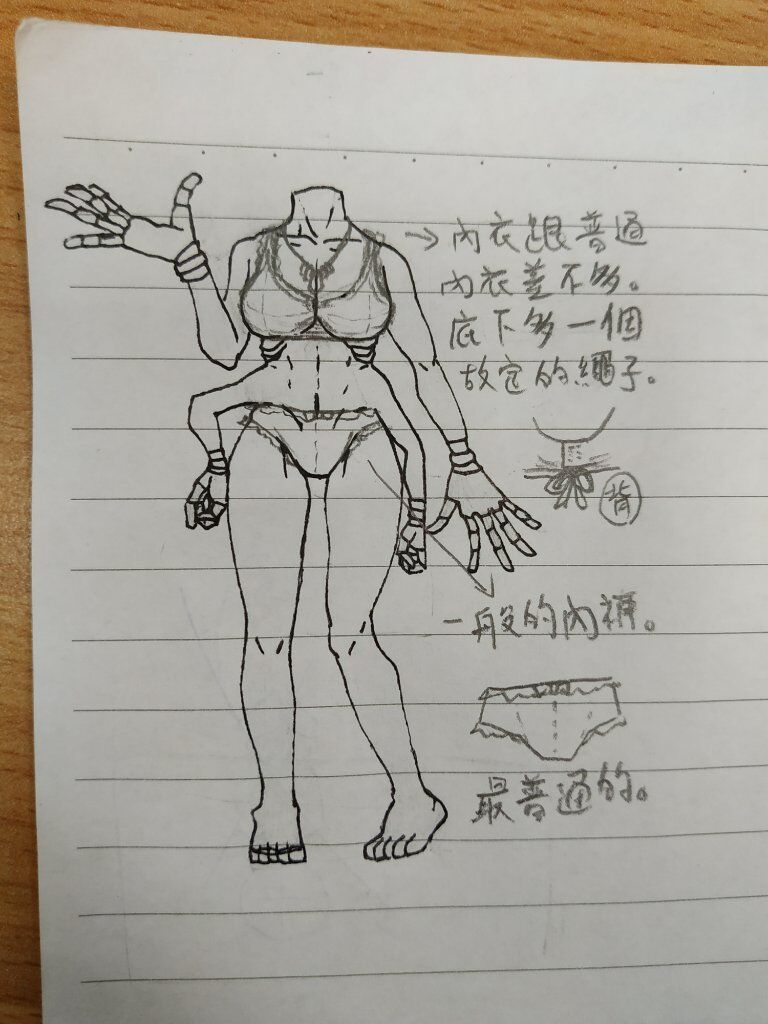 →內衣跟普通
內衣差不多。
底下多一個
故定的繩子。
背
一般的內褲。
最普通的。